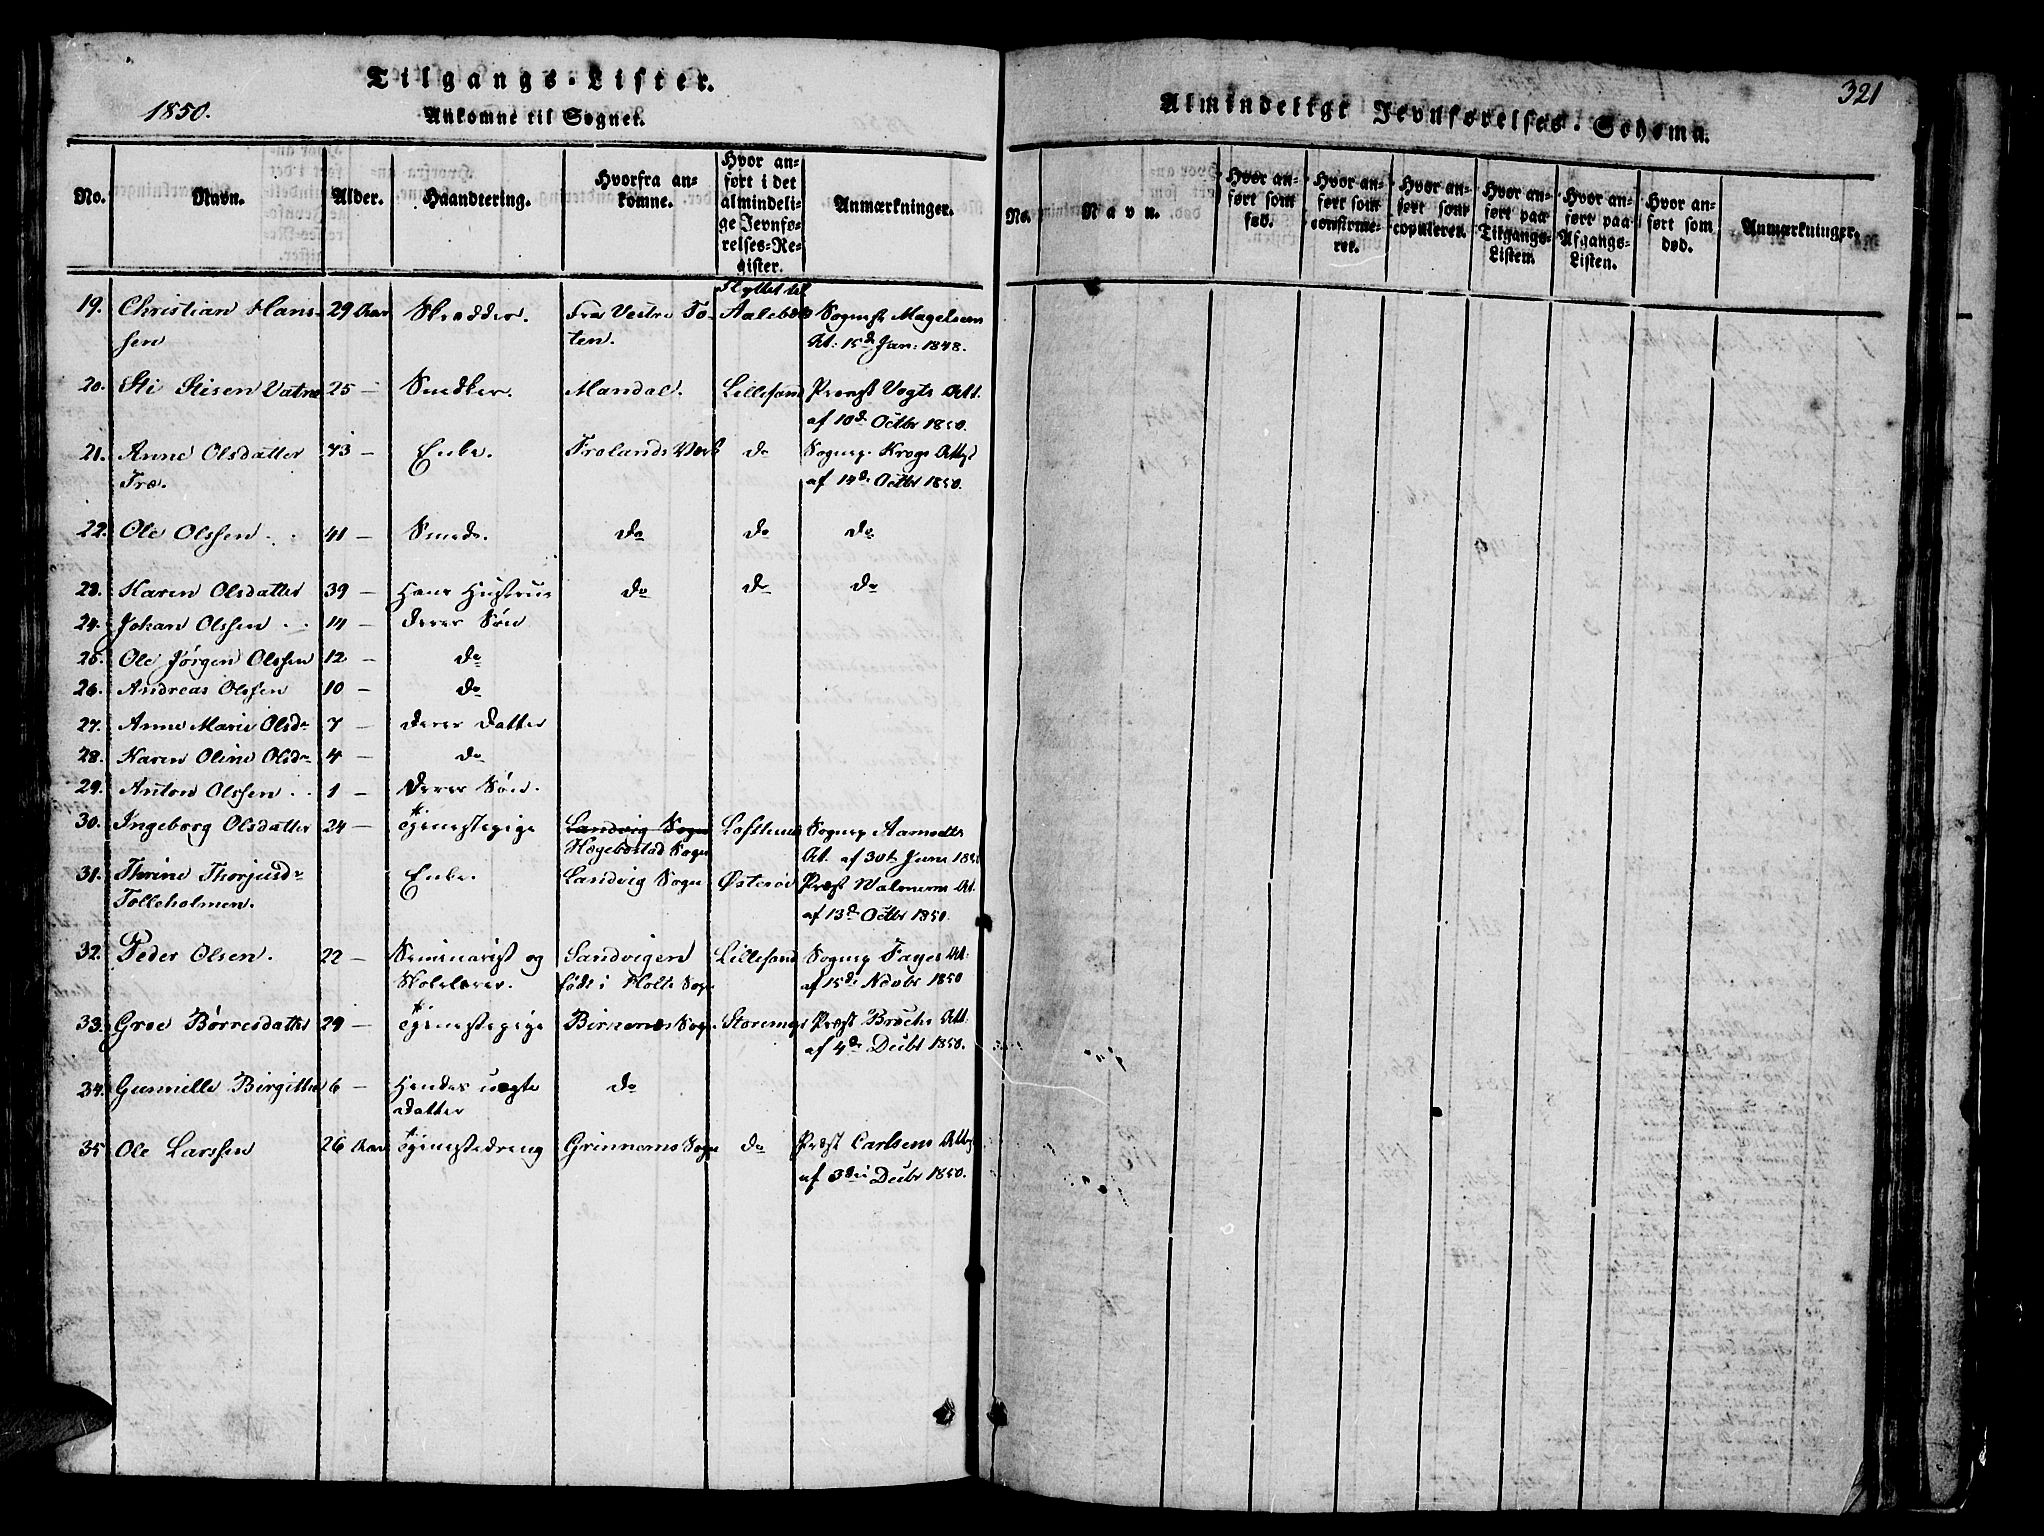 Tilgangs-Lister.
1850.
Ankomne til Sognet.
No. Navn. Alder. Haandtering. Hvorfra ankomne. Hvor anført i det almindelige Jevnførelses-Register. Anmærkninger.
Flyttet til
19. Christian Hans- 29 Aar Skrædder. Fra Vestre To- Sognpst Magelsens
sen ten. Att: 15de Jan: 1848.
20. Sti Stisen Vatne 25 — Snedker. Mandal. Lillesand Provst Vogts Att.
af 10de Octbr 1850.
21. Anne Olsdatter 73 — Enke. Frolands Værk do Sognep. Krogs Attest
Træ. af 14de Octbr 1850.
22. Ole Olssen 41 — Smed. do do do
23. Karen Olsdatter 39 — Hans Hustrue do do do
24. Johan Olssen 14 — Deres Søn
25. Ole Jørgen Olssen 12 — do
26. Andreas Olssen 10 — do
27. Anne Marie Olsdr 7 — Deres Datter
28. Karen Oline Olsdr 4 — do
29. Anton Olssen 1 — Deres Søn.
30. Ingeborg Olsdatter 24 — Tjenestepige Landvig Sogn
Hægebostad Sogn Att. af 30te Juni 1850
31. Thrine Enke. Landvig Sogn Præst
Tolleholmen. af 13de Octbr 1850.
32. Peder Olsen. 22 — Seminarist og Sandvigen Lillesand Sognep Fayes Att:
Skolelærer. født i Holte Sogn af 15de Novbr 1850
33. Groe Børresdatter 29 — Tjenestepige Birkenæs Sogn Præst Brochs Att.
af 4de Decbr 1850.
34. Gunnille Birgithe 6 — Hendes uægte do
Datter
35 Ole Larssen 26 Aar Tjenestedreng do Præst Carlsens Att
af 3die Decbr 1850.
321
Almindeligt Jevnførelses-Schema.
No. Navn. Hvor anført som fød. Hvor anført som confirmeret. Hvor anført som copuleret. Hvor anført paa Tilgangs-Listen. Hvor anført paa Afgangs-Listen. Hvor anført som død. Anmærkninger.